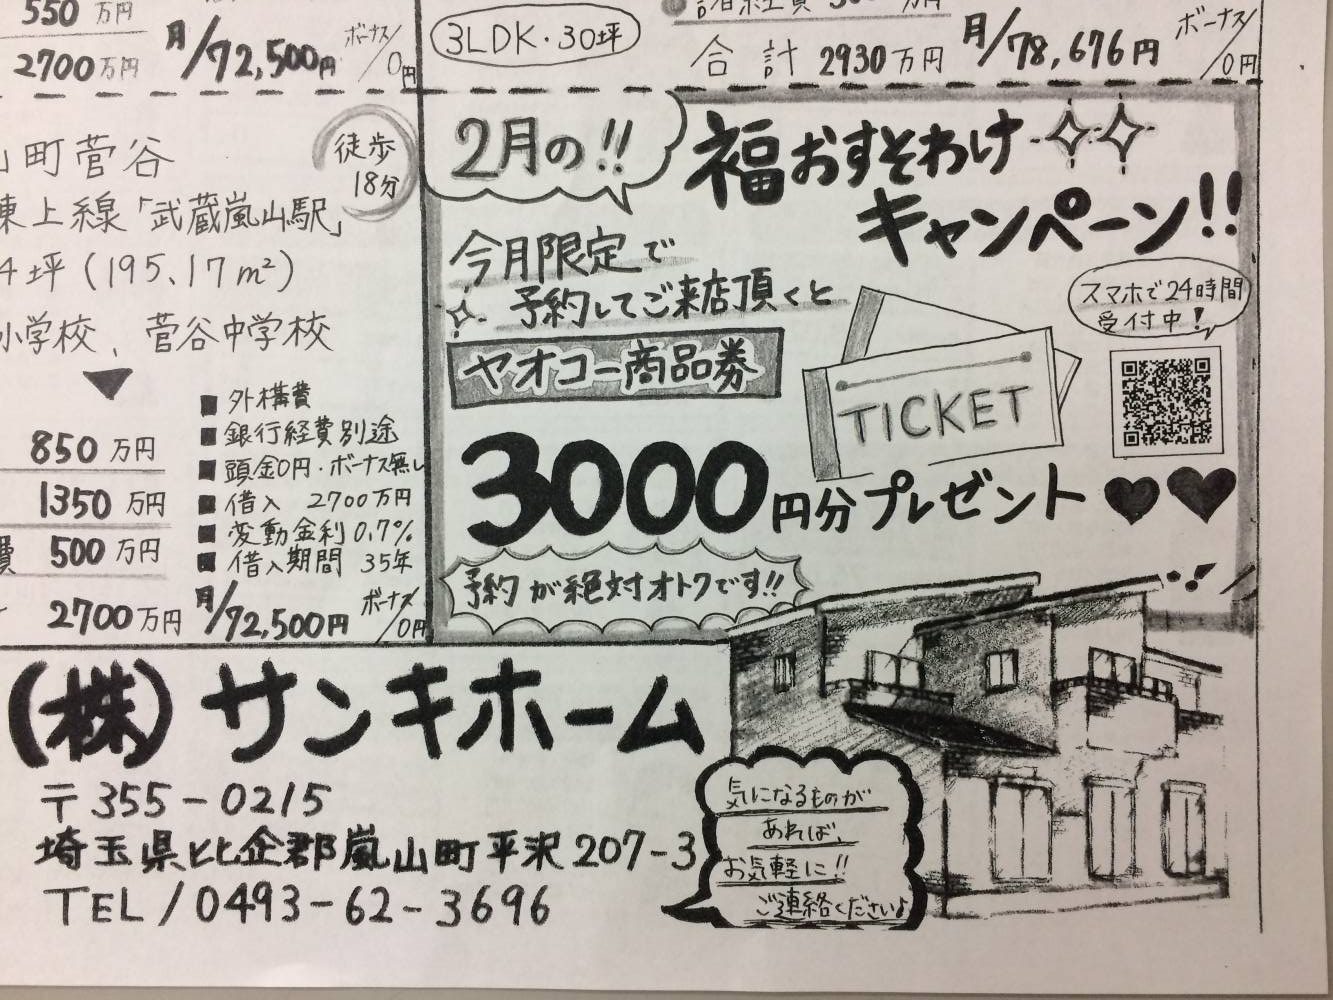 550万円
2700万円
月/72,500円
ボーナス/0円
3LDK・30坪
合計 2930万円
月/78,676円
ボーナス/0円
町菅谷
徒歩
18分
東上線「武蔵嵐山駅」
4坪(195.17m²)
小学校、菅谷中学校
850万円
1350万円
費 500万円
2700万円
月/72,500円
ボーナス/0円
■外構費
■銀行経費別途
■頭金0円・ボーナス無し
■借入 2700万円
■変動金利0.7%
■借入期間 35年
2月の!!
福おすそわけ
キャンペーン!!
今月限定で
予約してご来店頂くと
ヤオコー商品券
3000円分プレゼント
TICKET
スマホで24時間
受付中!
予約が絶対オトクです!!
(株)サンキホーム
〒355-0215
埼玉県比企郡嵐山町平沢207-3
TEL/0493-62-3696
気になるものが
あれば、
お気軽に!!
ご連絡くださいよ